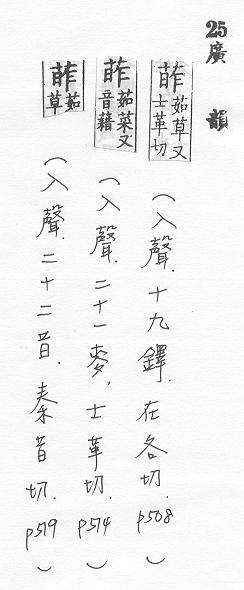 25廣韻
䔘茹草又士革切(入聲.十九鐸.在各切.p508)
䔘茹菜又音藉(入聲.二十一麥,士革切.p514)
䔘茹草(入聲.二十二昔.秦昔切.p519)